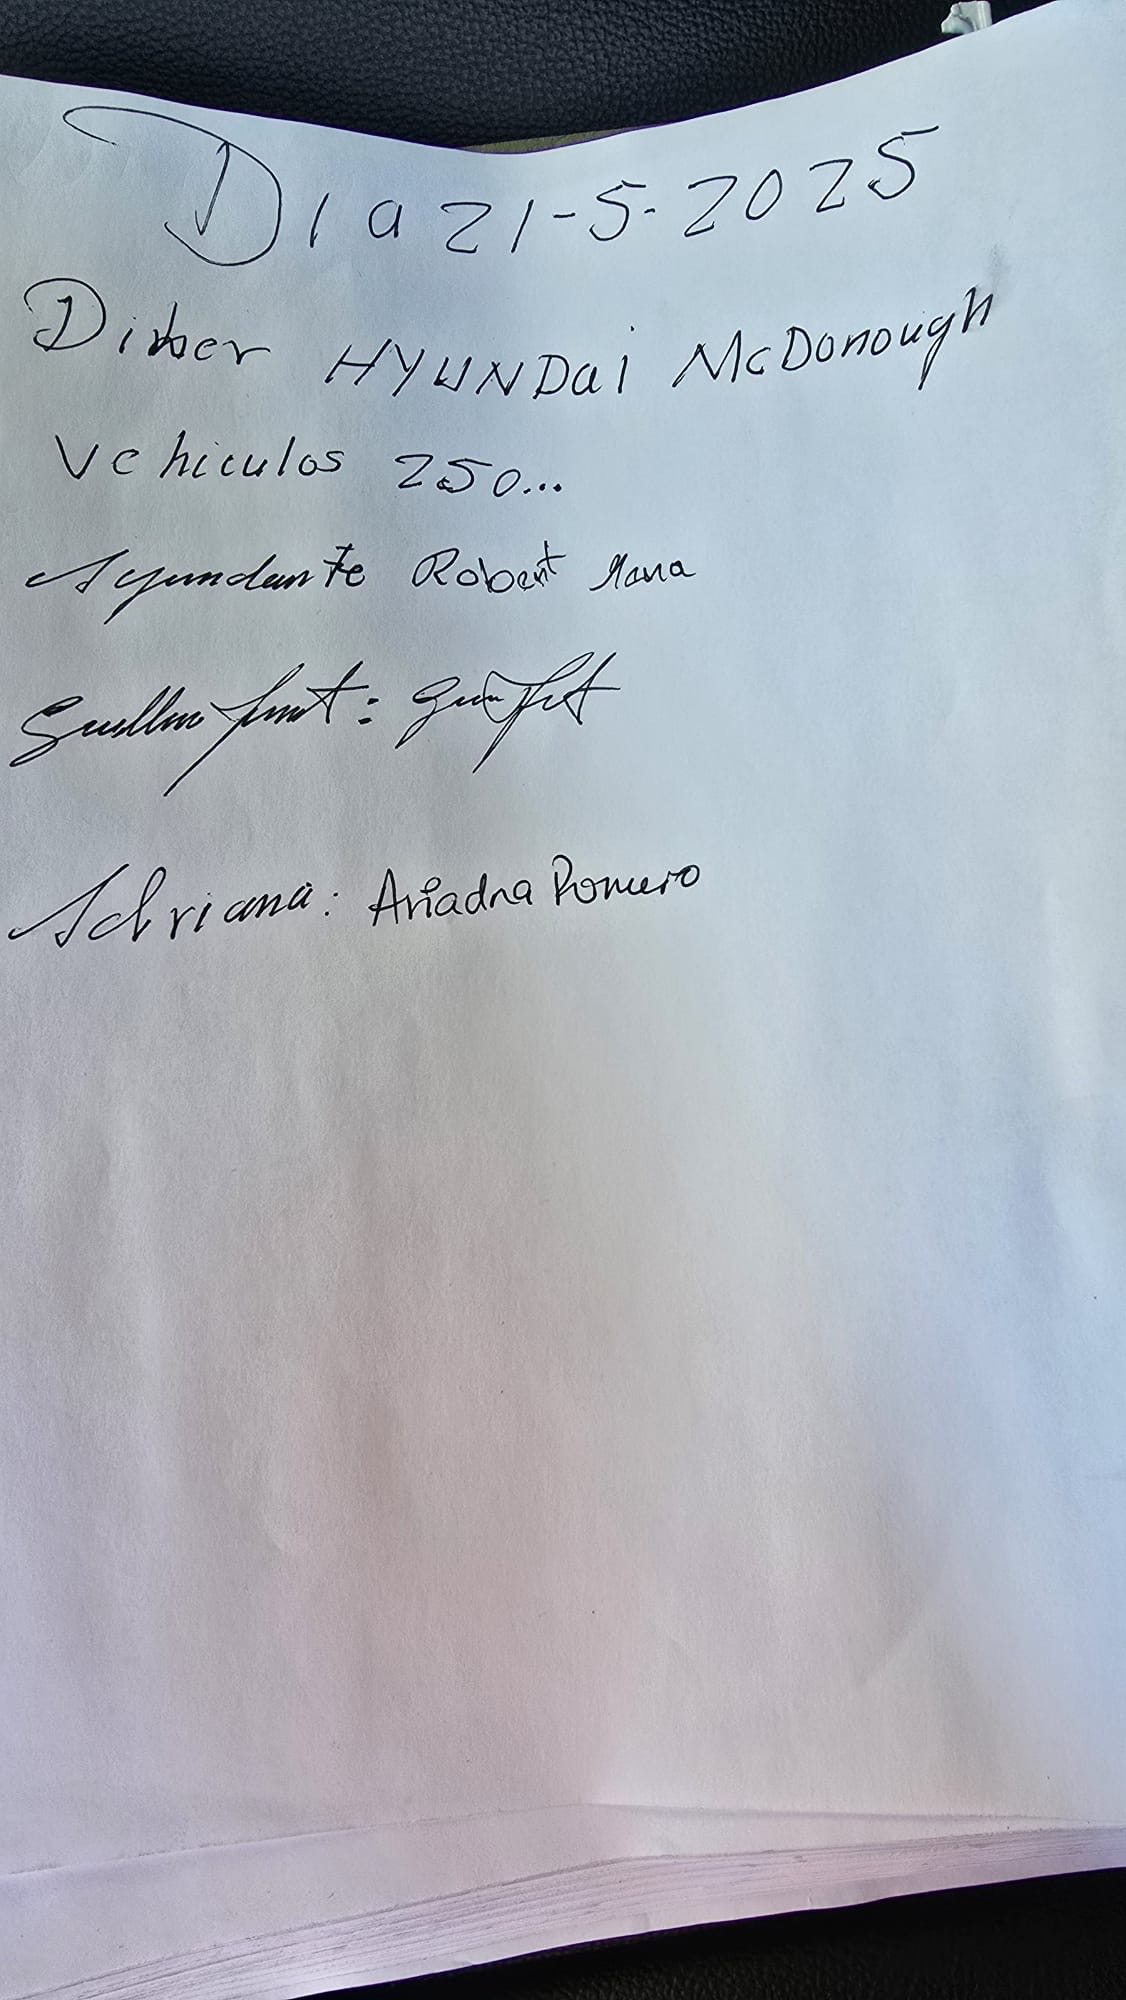 Dia 21-5-2025
Dimer HYUNDai McDonough
Vehiculos 250...
Ayundante Robert
Adriana: Ariadna Romero